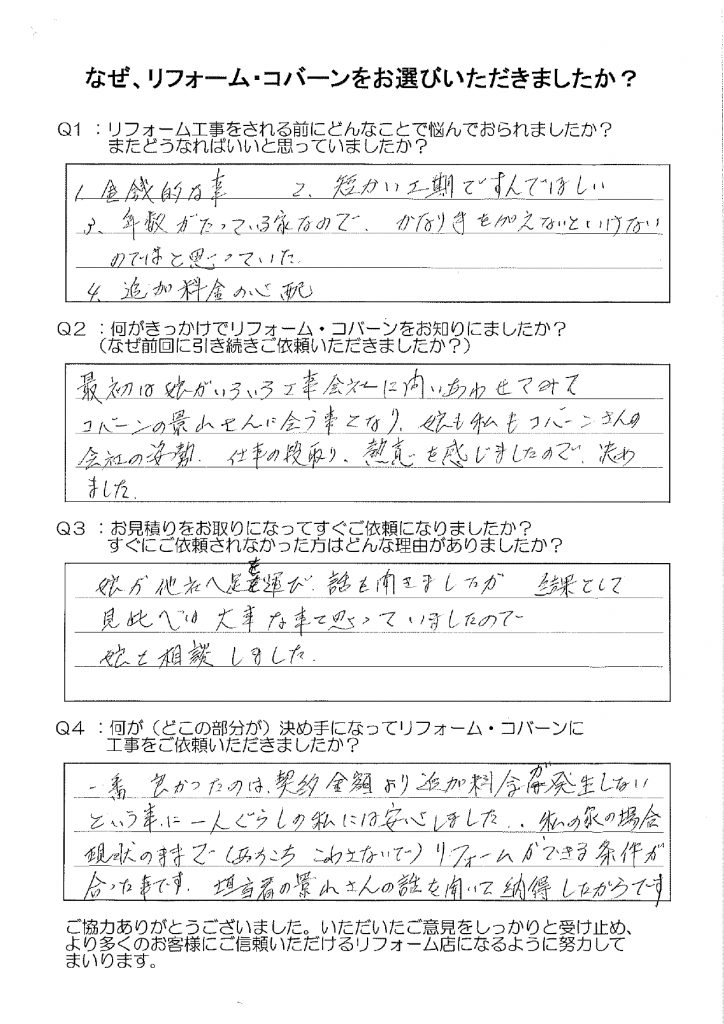 なぜ、リフォーム・コバーンをお選びいただきましたか？
Q1：リフォーム工事をされる前にどんなことで悩んでおられましたか？
またどうなればいいと思っていましたか？
1、金銭的な事　2、短かい工期ですんでほしい
3、年数がたっている家なので、かなり手を加えないといけない
のではと思っていた。
4、追加料金の心配
Q2：何がきっかけでリフォーム・コバーンをお知りにましたか？
（なぜ前回に引き続きご依頼いただきましたか？）
最初は娘がいろいろ工事会社に問いあわせてみて
コバーンの景山さんに会う事となり、娘も私もコバーンさんの
会社の姿勢、仕事の段取り、熱意を感じましたので、決め
ました。
Q3：お見積りをお取りになってすぐご依頼になりましたか？
すぐにご依頼されなかった方はどんな理由がありましたか？
娘が他社へ足を運び、話も聞きましたが　結果として
見比べは大事な事と思っていましたので
娘と相談しました。
Q4：何が（どこの部分が）決め手になってリフォーム・コバーンに
工事をご依頼いただきましたか？
一番良かったのは、契約金額より追加料金が発生しない
という事に一人ぐらしの私には安心しました。私の家の場合
現状のままで（あちこちこわさないで）リフォームができる条件が
合った事です。担当者の景山さんの話を聞いて納得したからです
ご協力ありがとうございました。いただいたご意見をしっかりと受け止め、
より多くのお客様にご信頼いただけるリフォーム店になるように努力して
まいります。